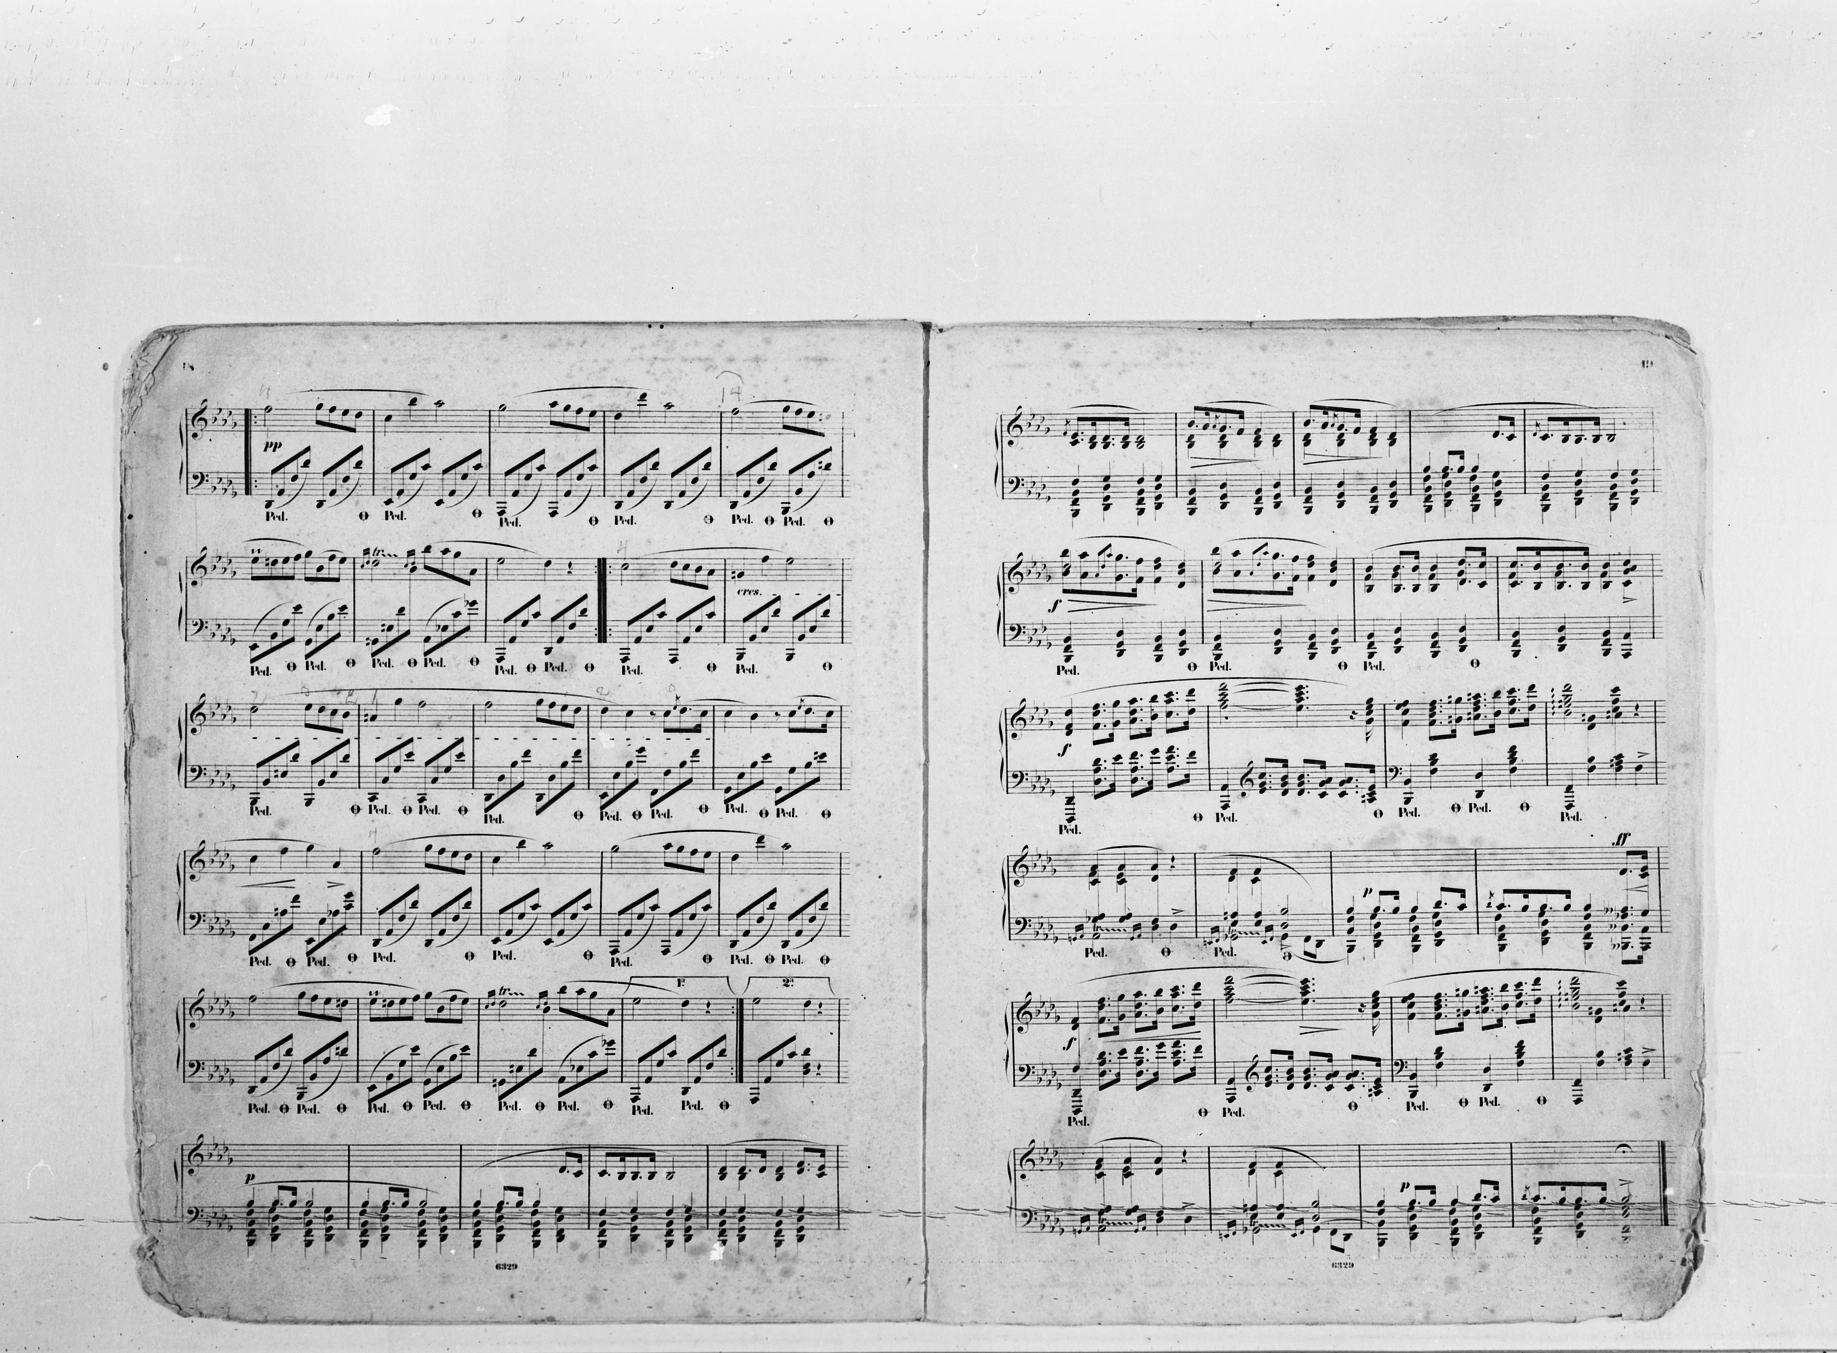 14
pp
Ped. Ped. Ped. Ped. Ped. Ped.
tr
cres.
Ped. Ped. Ped. Ped. Ped. Ped. Ped. Ped.
Ped. Ped. Ped. Ped. Ped. Ped. Ped. Ped.
Ped. Ped. Ped. Ped. Ped. Ped. Ped.
1a
2a
tr
Ped. Ped. Ped. Ped. Ped. Ped. Ped. Ped.
p
6329
49
f
Ped. Ped. Ped.
f
Ped. Ped. Ped. Ped. Ped.
ff
p
Ped. Ped.
f
Ped. Ped. Ped. Ped.
p
6329